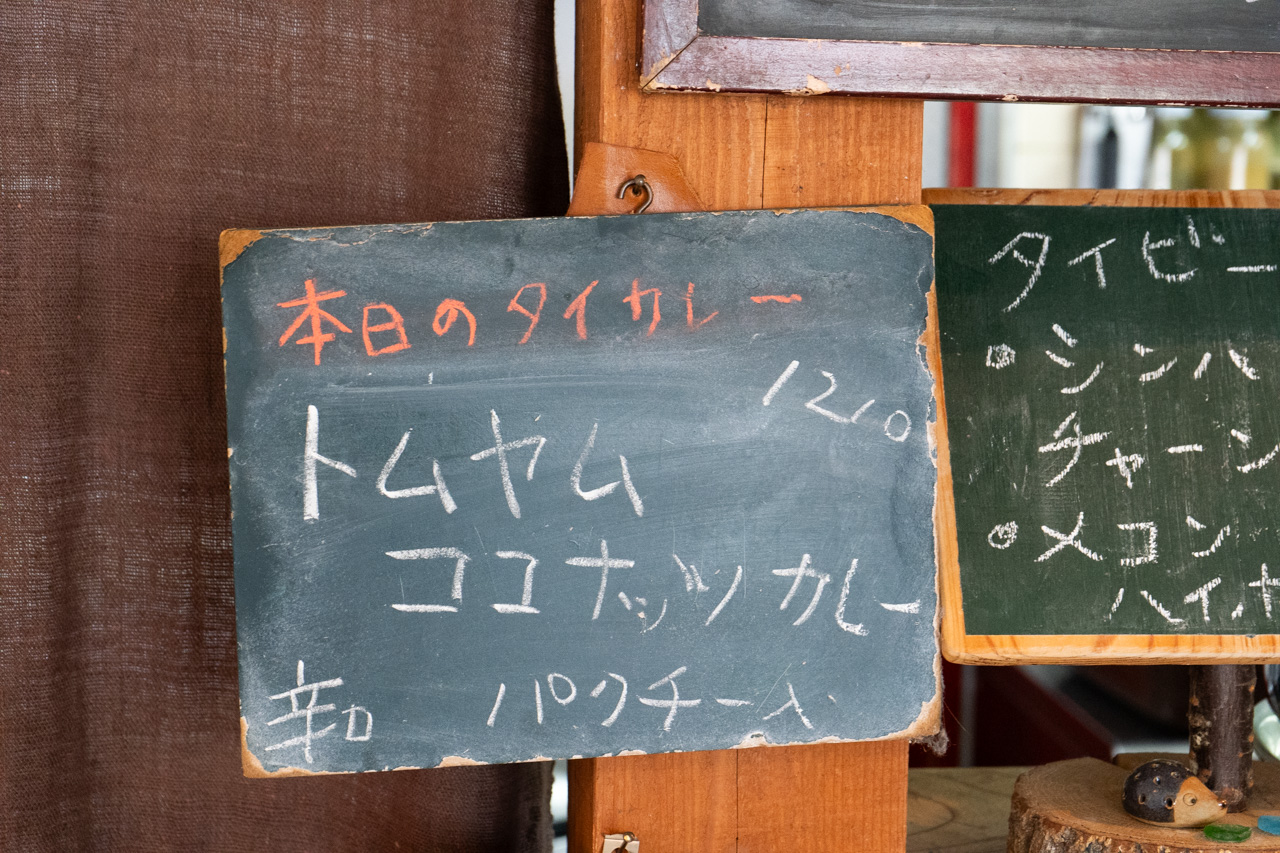 本日のタイカレー
1200
トムヤム
ココナッツカレー
辛口 パクチー入
タイビー
◎シンハ
チャーン
◎メコン
ハイ